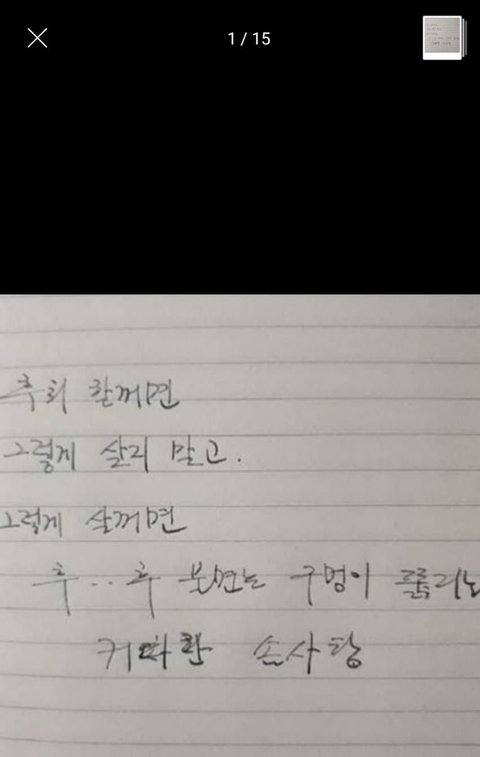 1 / 15
후회 할꺼면
그렇게 살지 말고.
그렇게 살꺼면
후 .. 후 불면은 구멍이
커다란 솜사탕